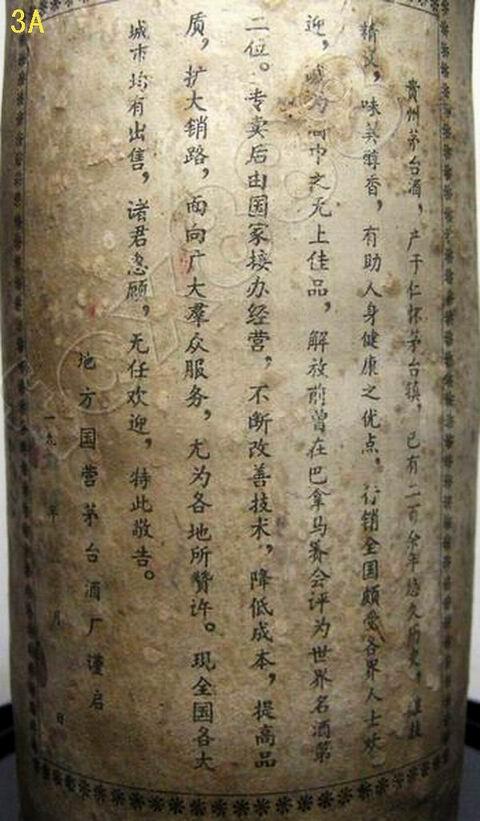 3A
贵州茅台酒，产于仁怀茅台镇，已有二百余年悠久历史，
精良，味美醇香，有助人身健康之优点，行销全国颇受各界人士欢
迎，诚为酒中之无上佳品，解放前曾在巴拿马赛会评为世界名酒第
二位。专卖后由国家接办经营，不断改善技术，降低成本，提高品
质，扩大销路，面向广大群众服务，尤为各地所赞许。现全国各大
城市均有出售，诸君惠顾，无任欢迎，特此敬告。
地方国营茅台酒厂谨启
一九 年 月 日